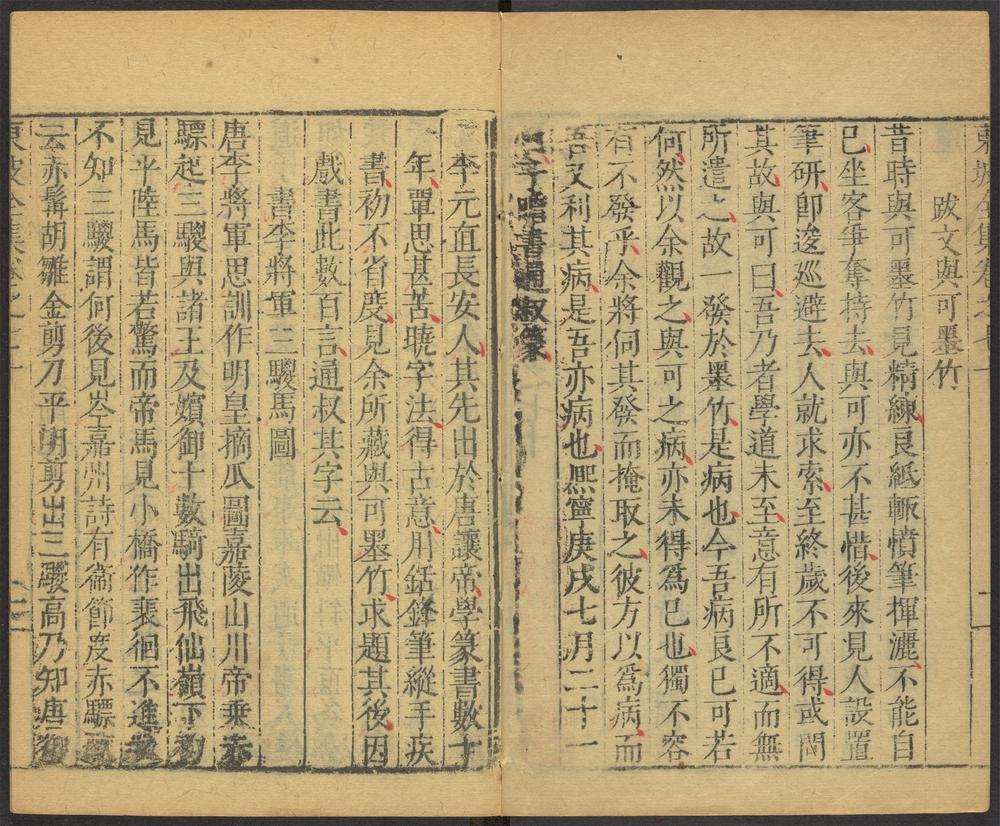 東坡全集卷之七十
跋文與可墨竹
昔時與可墨竹見精練良紙輒憤筆揮灑不能自
已坐客爭奪持去與可亦不甚惜後來見人設置
筆研即逡巡避去人就求索至終歲不可得或問
其故與可曰吾乃者學道未至意有所不適而無
所遣之故一發於墨竹是病也今吾病良已可若
何然以余觀之與可之病亦未得爲已也獨不容
有不發乎余將伺其發而掩取之彼方以爲病而
吾又利其病是吾亦病也熈寧庚戌七月二十一
書通叔篆
李元直長安人其先出於唐讓帝學篆書數十
年單思甚苦曉字法得古意用銛鋒筆縱手疾
書初不省度見余所藏與可墨竹求題其後因
戲書此數百言通叔其字云
書李將軍三騣馬圖
唐李將軍思訓作明皇摘瓜圖嘉陵山川帝乗赤
驃起三騣與諸王及嬪御十數騎出飛仙嶺下初
見平陸馬皆若驚而帝馬見小橋作裵徊不進
不知三騣謂何後見岑嘉州詩有衞節度赤驃
云赤髯胡雛金剪刀平明剪出三騣高乃知唐御
東坡全集卷之